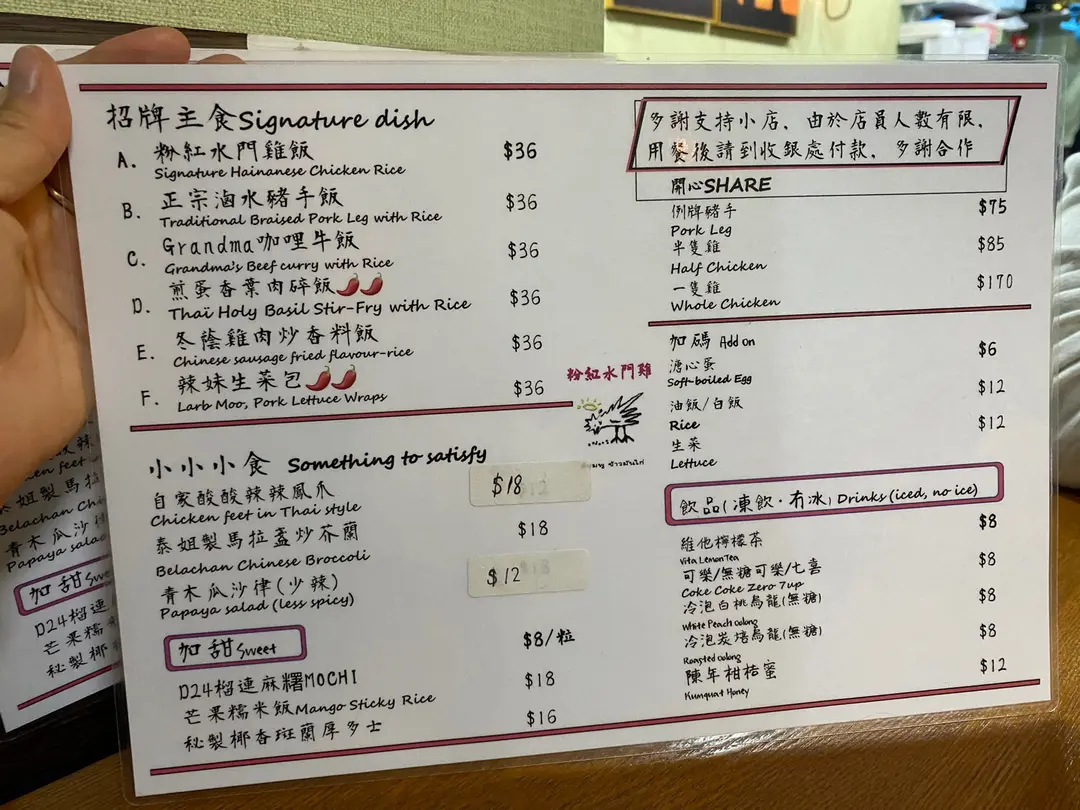 招牌主食Signature dish
A. 粉紅水門雞飯 $36
Signature Hainanese Chicken Rice
B. 正宗滷水豬手飯 $36
Traditional Braised Pork Leg with Rice
C. Grandma咖哩牛飯 $36
Grandma's Beef curry with Rice
D. 煎蛋香葉肉碎飯 $36
Thaï Holy Basil Stir-Fry with Rice
E. 冬蔭雞肉炒香料飯 $36
Chinese sausage fried flavour-rice
F. 辣妹生菜包 $36
Larb Moo, Pork Lettuce Wraps
小小小食 Something to satisfy
自家酸酸辣辣鳳爪 $18
Chicken feet in Thai style
泰姐製馬拉盞炒芥蘭 $18
Belachan Chinese Broccoli
青木瓜沙律(少辣) $12
Papaya salad (less spicy)
加甜Sweet
D24榴連麻糬MOCHI $8/粒
芒果糯米飯Mango Sticky Rice $18
秘製椰香斑蘭厚多士 $16
粉紅水門雞
多謝支持小店，由於店員人數有限，
用餐後請到收銀處付款，多謝合作
開心SHARE
例牌豬手 $75
Pork Leg
半隻雞 $85
Half Chicken
一隻雞 $170
Whole Chicken
加碼 Add on
溏心蛋 $6
Soft-boiled Egg
油飯/白飯 $12
Rice
生菜 $12
Lettuce
飲品(凍飲·冇冰) Drinks (iced, no ice)
維他檸檬茶 $8
Vita Lemon Tea
可樂/無糖可樂/七喜 $8
Coke Coke Zero 7up
冷泡白桃烏龍(無糖) $8
White Peach oolong
冷泡炭焙烏龍(無糖) $8
Roasted oolong
陳年柑桔蜜 $12
Kumquat Honey